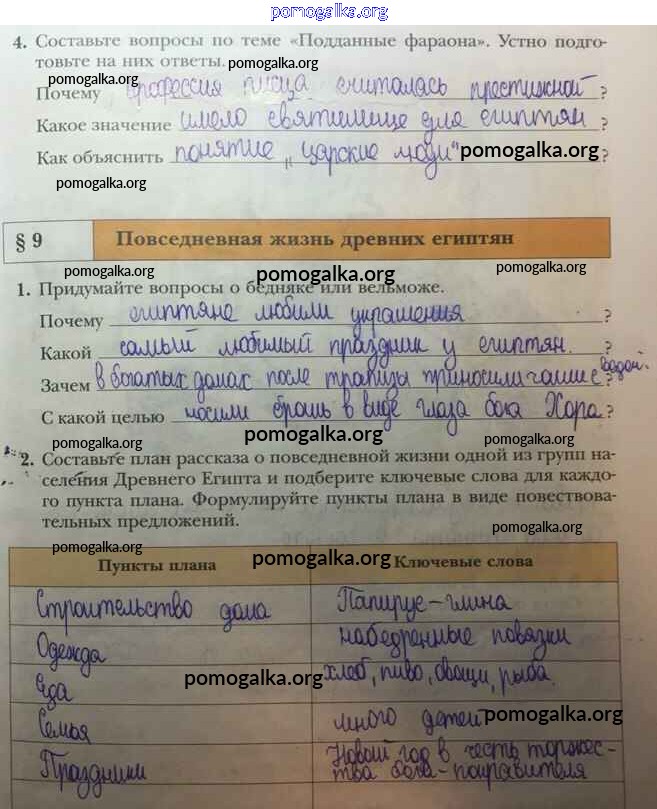 pomogalka.org
4. Составьте вопросы по теме «Подданные фараона». Устно подго-
товьте на них ответы. pomogalka.org
pomogalka.org
Почему профессия писца считалась престижной ?
pomogalka.org
Какое значение имело святилище для египтян ?
Как объяснить понятие „царские люди" pomogalka.org ?
pomogalka.org
§ 9 Повседневная жизнь древних египтян
pomogalka.org pomogalka.org pomogalka.org
1. Придумайте вопросы о бедняке или вельможе.
Почему египтяне любили украшения ?
Какой самый любимый праздник у египтян. ?
Зачем в богатых домах после трапезы приносили чаши с водой. ?
С какой целью носили брошь в виде глаза бога Хора ?
pomogalka.org pomogalka.org pomogalka.org
2. Составьте план рассказа о повседневной жизни одной из групп на-
селения Древнего Египта и подберите ключевые слова для каждо-
го пункта плана. Формулируйте пункты плана в виде повествова-
тельных предложений. pomogalka.org
pomogalka.org pomogalka.org
Пункты плана Ключевые слова
Строительство дома Папирус-глина
Одежда набедренные повязки
Еда хлеб, пиво, овощи, рыба.
pomogalka.org
Семья много детей pomogalka.org
Праздники Новый год в честь торжес-
тва бога-покровителя